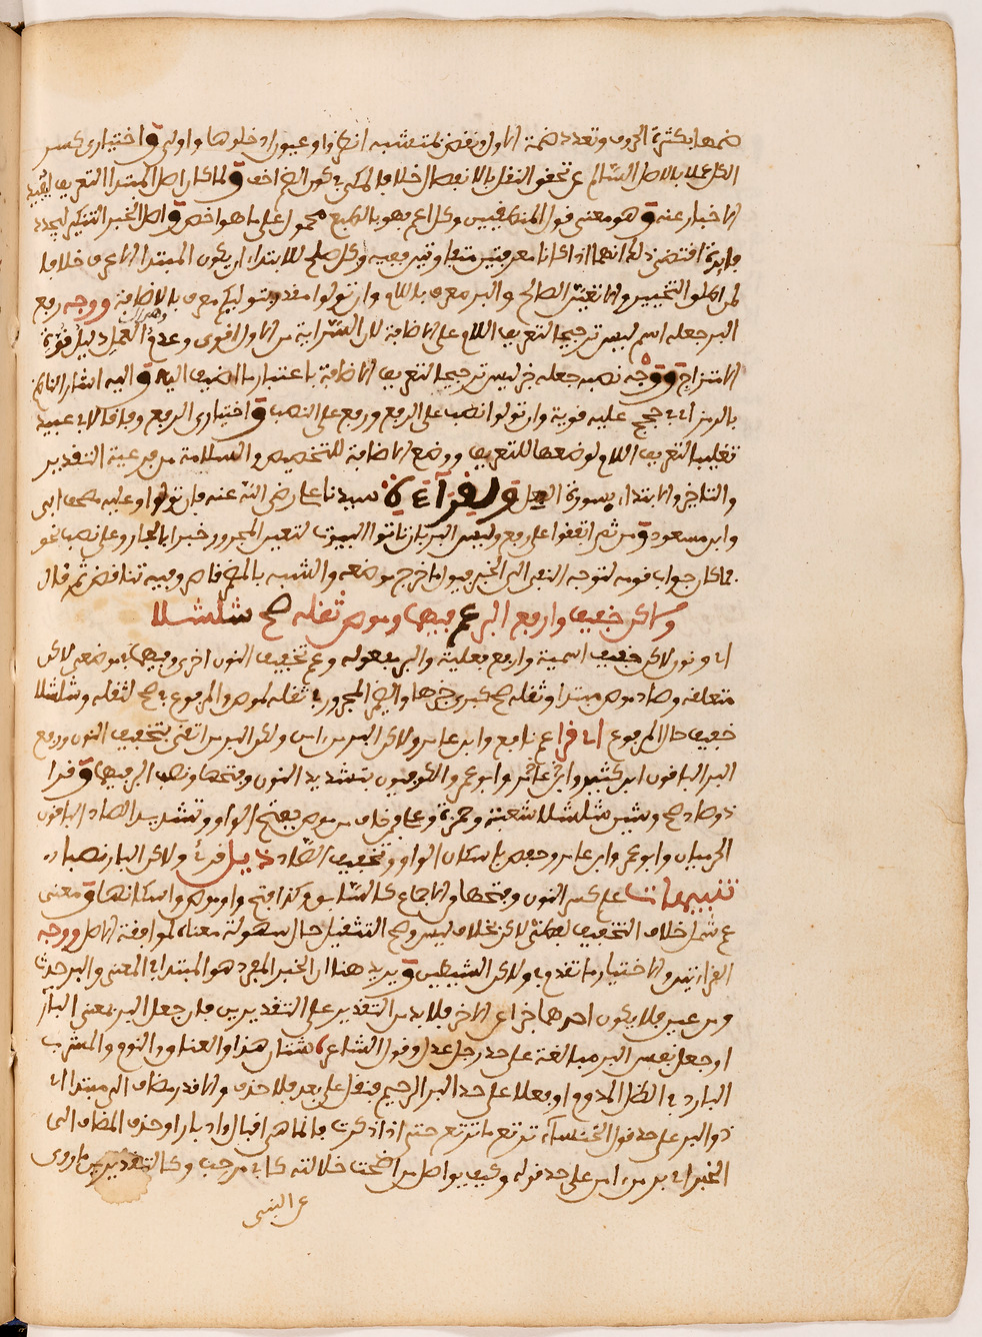 ضمها بكثرة الحروف وتعدد ضمة الاول ونقض بمتعشبه انظروا وعيون ادخلوها واولى واختياري كسر
الكل عملا بالاصل السالم عن تحقق النقل بالانفصال خلافا لمكي كون الضم اخف ولما كان اصل المبتدا التعريف ليفيد
الاخبار عنه وهو معنى قول المنطقيين وكل اعم فهو بالطبع محمول على ما هو اخص واصل الخبر التنكير ليجدد
فايدة اقتضى ذلك انهما اذا كانا معرفتين متفاوتين فيه وكل صالح للابتداء ان يكون المبتدا الاعرف خلافا
لمن اطلق التخيير والا تعين الصالح والبر معرف باللام وان تولوا مقدر بتوليكم معرف بالاضافة ووجه رفع
البر جعله اسم ليس ترجيحا لتعريف اللام على الاضافة لان السراية من الاول اقوى وعدم العمل دليل قوة
الامتزاج ووجه نصبه جعله خبر ليس ترجيحا لتعريف الاضافة باعتبار ما اضيف اليه واليه اشار الناظم
بالرمز اي حجج عليه قوية وان تولوا نصب على الرفع ورفع على النصب واختياري الرفع وفاقا لابي عبيد
تغليبا لتعريف اللام لوضعها للتعريف ووضع الاضافة للتخصيص والسلامة من فرعية التقدير
والتاخير والابتداء بسورة ولقراءة سيدنا علي رضي الله عنه فان تولوا وعليه مصحف ابي
وابن مسعود ومن ثم اتفقوا على رفع وليس البر بان تاتوا البيوت لتعين المجرور خبرا بالجار وعلى نصب نحو
فما كان جواب قومه لتوجه النفي الى الخبر فيوما خرج موضعه والشبه بالمضم قاصر وفيه تناقض ثم قال
ولاكن خفيف وارفع البر عم فيهما وموص ثقله صح شلشلا
اي ونون لاكن خفيف اسمية وارفع فعلية والبر مفعوله وعم تخفيف النون اخرى وفيهما في موضعي لاكن
متعلقه وصاد موص مبتدا وثقله صح كبرى خبرها والضمير المجرور في ثقله لموص والمرفوع في صح لثقله وشلشلا
خفيف حال المرفوع اي قرا عم نافع وابن عامر ولاكن البر من امن ولاكن البر من اتقى بتخفيف النون ورفع
البر الباقون ابن كثير وابو عمرو والكوفيون بتشديد النون وفتحها ونصب البر فيهما وقرا
ذو صاد صح وشين شلشلا شعبة وحمزة وعلي فمن خاف من موص بفتح الواو وتشديد الصاد الباقون
الحرميان وابو عمرو وابن عامر وحفص باسكان الواو وتخفيف الصاد ذيل قرئ ولاكن البار نصبا
تنبيهات علم كسر النون وفتحها والاجماع كالسابق وكذا فتح واو موص واسكانها ومعنى
عم شمل خلاف التخفيف بخلاف ليس وصح التثقيل حال سهولة معناه لموافقة الاصل ووجه
القراءتين والاختيار ما تقدم في ولاكن الشيطين ويريد هنا ان الخبر المفرد هو المبتدا في المعنى والبر حدث
ومن عين فلا يكون احدهما خبرا عن الاخر فلا بد من التقدير على التقديرين فان جعل البر بمعنى البار
او جعل نفس البر مبالغة على حد رجل عدل وقول الشاعر شتان هذا والعناق والنوم والمشرب
البارد في الظل الدوم او فعلا على حد البر الرحيم فنقل على بعد فلا حذف والا قدر مضاف الى مبتدا اي
ذو البر على حد قول الخنساء ترتع ما رتعت حتى اذا ادكرت فانما هي اقبال وادبار او حذف المضاف الى
الخبر اي بر من امن على حد قوله وكيف يواصل من اضحت خلالته كابي مرحب وكالتقديرين ما روى
عن النبي